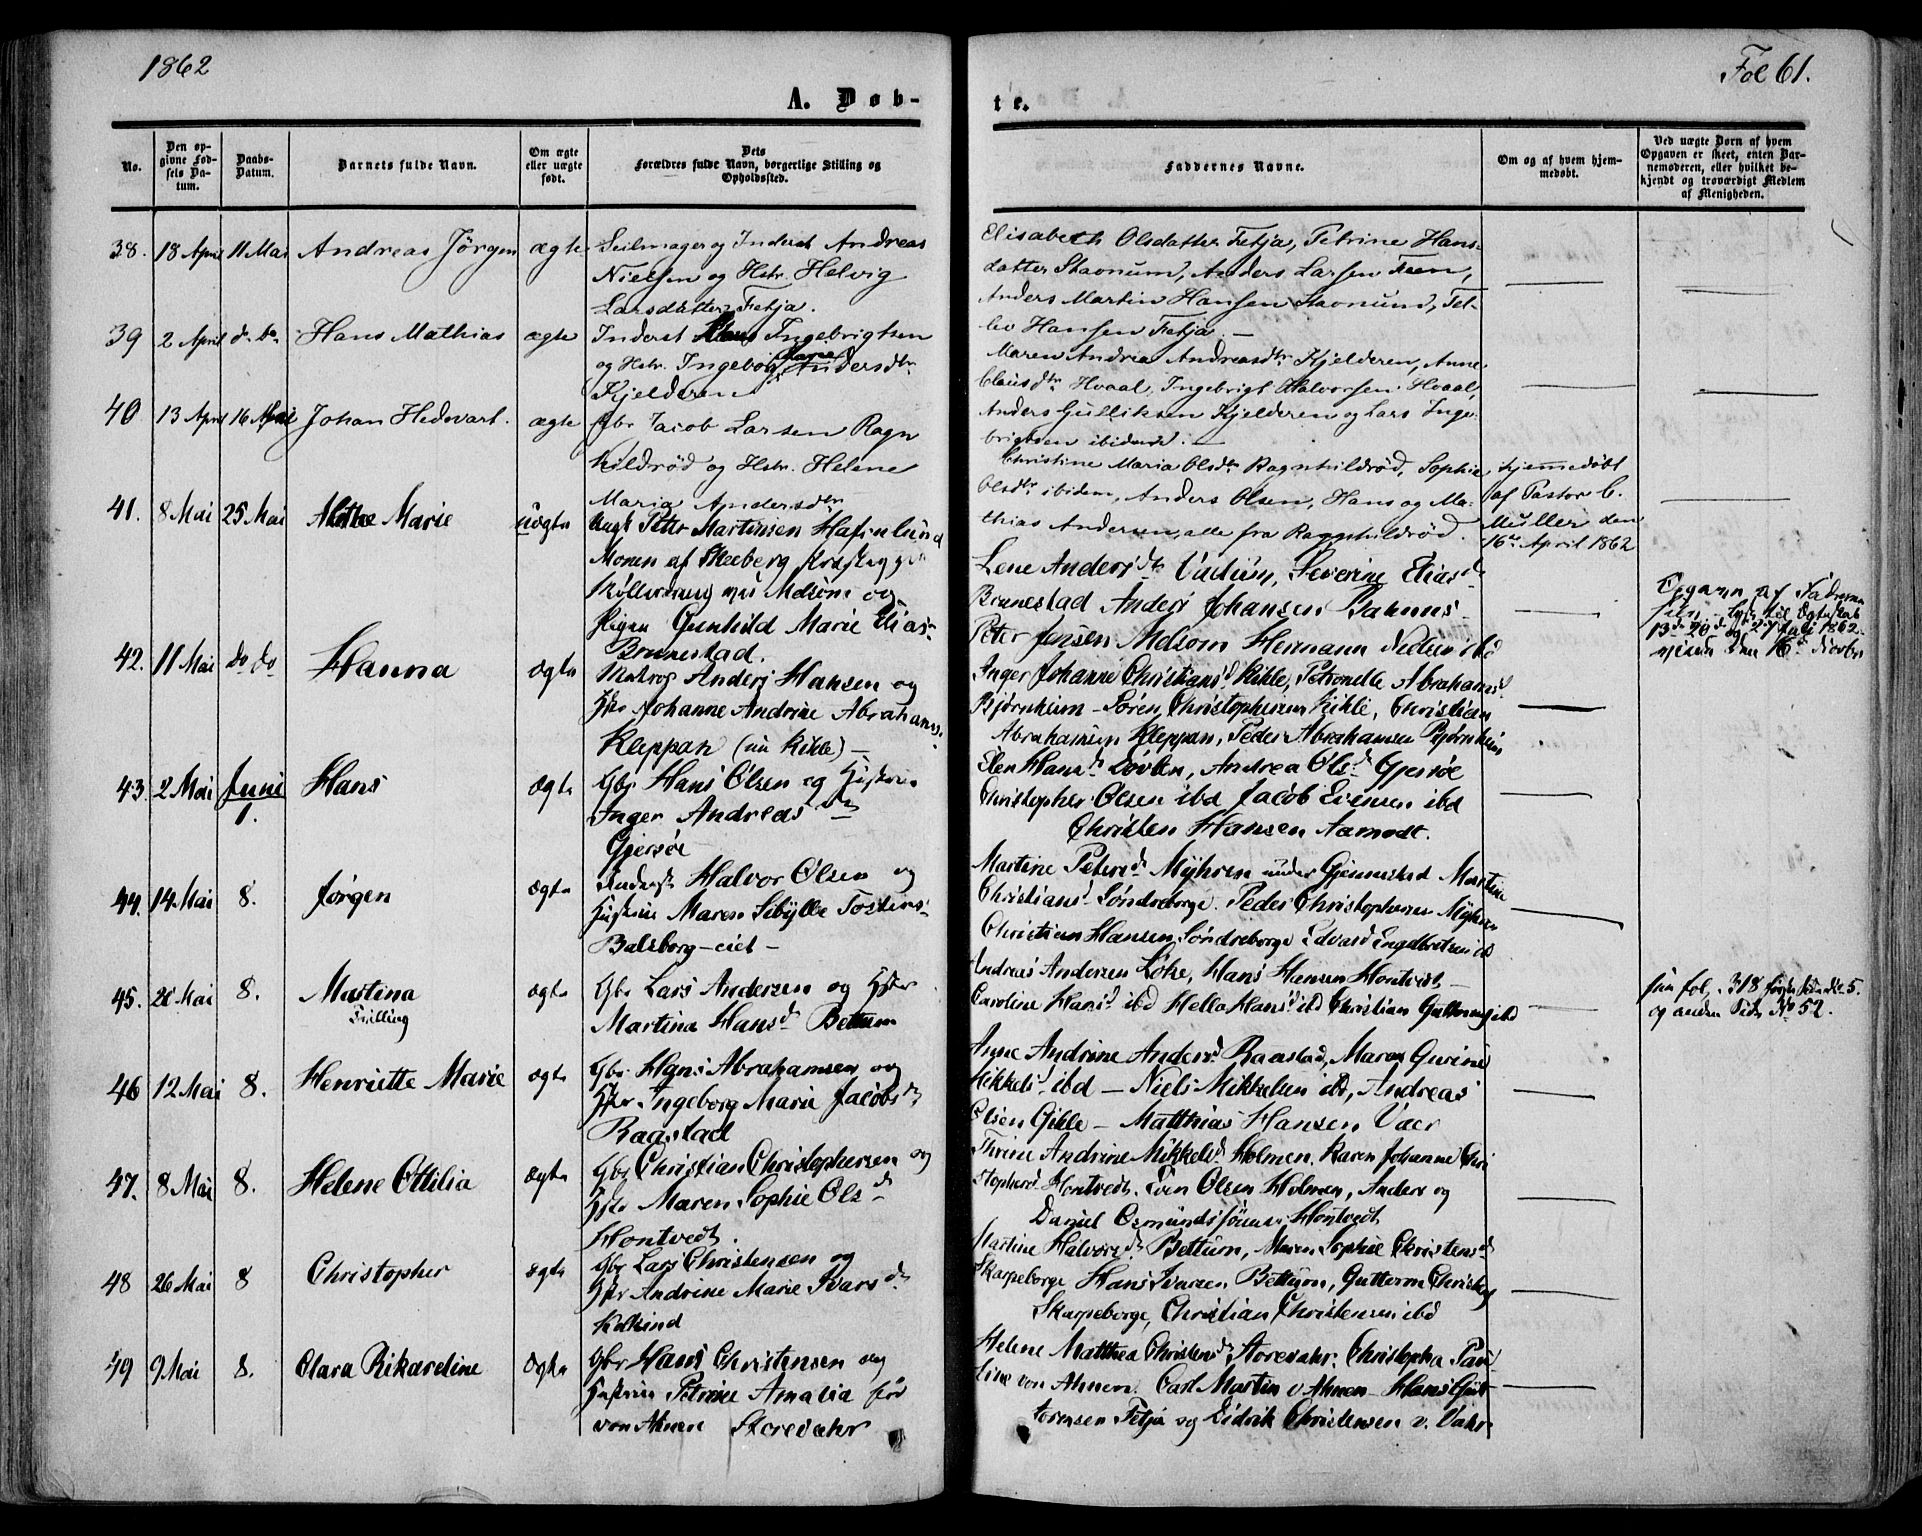 1862
Fol 61.
A. Døb-
te.
No.
Den op-
givne Fød-
sels Da-
tum.
Daabs-
Datum.
Barnets fulde Navn.
Om ægte
eller uægte
født.
Dets
Forældres fulde Navn, borgerlige Stilling og
Opholdssted.
Faddernes Navne.
Om og af hvem hjem-
medøbt.
Ved uægte Børn af hvem
Opgaven er skeet, enten Bar-
nemoderen, eller hvilket be-
kjendt og troværdigt Medlem
af Menigheden.
38. 18 April 11 Mai Andreas Jørgen ægte Seilmager og Inderst Andreas
Nielsen og Hstr. Helvig
Larsdatter Fetja.
Elisabeth Olsdatter Fetja, Petrine Hans-
datter Stavnum, Anders Larsen Feen,
Anders Martin Hansen Stavnum, Det-
lev Hansen Fetja.
39 2 April do. do Hans Mathias ægte Inderst Hans Ingebrigtsen
og Hstr. Ingeborg Marie Andersdtr
Kjelderen
Maren Andrea Andreasdtr Kjelderen, Anne
Clausdtr Hvaal, Ingebrigt Halvorsen Hvaal,
Anders Gulliksen Kjelderen og Lars Inge-
brigtsen ibidem.
40 13 April 16 April Johan Hedevart. ægte Gbr. Jacob Larsen Ragn
hildrød og Hstr. Helene
Maria Andersdtr
Christine Maria Olsdtr Ragnhildrød, Sophie
Olsdtr ibidem, Anders Olsen, Hans og Ma-
thias Andersen, alle fra Ragnhildrød.
hjemmedøbt
af Pastor C.
Müller den
16de April 1862
41. 8 Mai 25 Mai Mathe Marie uægte Ungk Peter Martinsen Hafnlund
Monen af Skeeberg
Melsom og
Pigen Gunhild Marie Elias-
Brunestad.
Lene Andersdtr Vadum, Severine Eliasd
Brunestad Anders Johansen
Peter Jensen Melsom Hermann ibd
Opgaven af Faderen
13de 20de og 27 Juli 1862
den 16de
42. 11 Mai do do Hanna ægte Matros Anders Hansen og
Hstr Johanne Andrine Abrahams-
Kleppan (nu Kihle) —
Inger Johanne Christiansd Kihle, Petronelle Abrahamsd
Bjørnheim - Søren Christophersen Kihle, Christian
Abrahamsen Kleppan, Peder Abrahamsen Bjørnheim
43. 2 Mai Juni 1. Hans ægte Gbr Hans Olsen og Hustru
Inger Andreasdtr
Gjersøe
Elen Hansd Løvlien, Andrea Olsd Gjersøe
Christopher Olsen ibd Jacob Evensen ibd
Christen Hansen Aamodt.
44. 14 Mai 8. Jørgen ægte Inderst Halvor Olsen og
Hustru Maren Sibylle Tostens-
Balsborg-eiet -
Martine Petersd Myhren under Gjennestad Martine
Christiansd Søndreborge. Peder Christophersen Myhren
Christian Hansen Søndreborge Edvard Engebretsen ibd
45. 28 Mai 8. Martina
Trilling
ægte Gbr Lars Andersen og Hstr
Martina Hansd Bettum
Andreas Andersen Løke, Hans Hansen Hontvedt -
Caroline Hansd ibd Helle Hansd ibd Christian Guttormsen ibd
fol. 318 No 5.
og anden Side No 52.
46 12 Mai 8. Henriette Marie ægte Gbr Hans Abrahamsen og
Hstr Ingeborg Marie Jacobsdtr
Raastad
Anne Andrine Andersd Raastad, Maren Gurine
Mikkelsd ibd - Niels Mikkelsen ibd, Andreas
Olsen Gihle - Matthias Hansen Vaer
47. 8 Mai 8. Helene Ottilia ægte Gbr Christian Christophersen og
Hstr Maren Sophie Olsd
Hontvedt.
Thrine Andrine Mikkelsd Holmen. Karen Johanne Chri
stophersd Hontvedt. Even Olsen Holmen, Anders og
Daniel Osmundssønner Hontvedt
48 26 Mai 8 Christopher ægte Gbr Lars Christensen og
Hstr Andrine Marie Ivarsdtr
Kolkind
Martine Halvorsd Bettum, Maren Sophie Christensd
Skarpeborge Hans Ivarsen Bettum, Guttorm Christens
Skarpeborge, Christian Christensen ibd
49 9 Mai 8. Clara Rikardine ægte Gbr Hans Christensen og
Hustru Petrine Amalia før
von Ahnen Storevahr
Helene Matthea Christensd Storevahr. Christopha Pau-
line von Ahnen. Carl Martin v. Ahnen - Hans Gut-
tormsen Fetja og Eidrik Christensen v. Vahr.